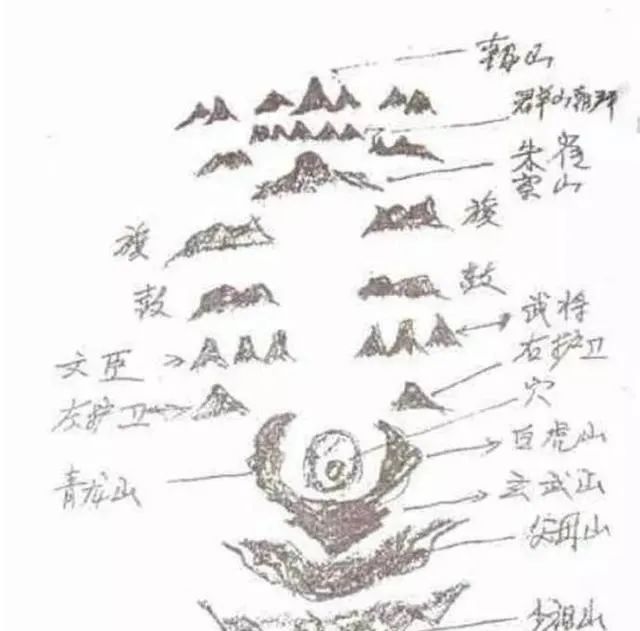 朝山
群山朝拜
朱雀
案山
旗
旗
鼓
鼓
武将
文臣
右护卫
左护卫
穴
白虎山
青龙山
玄武山
父母山
少祖山